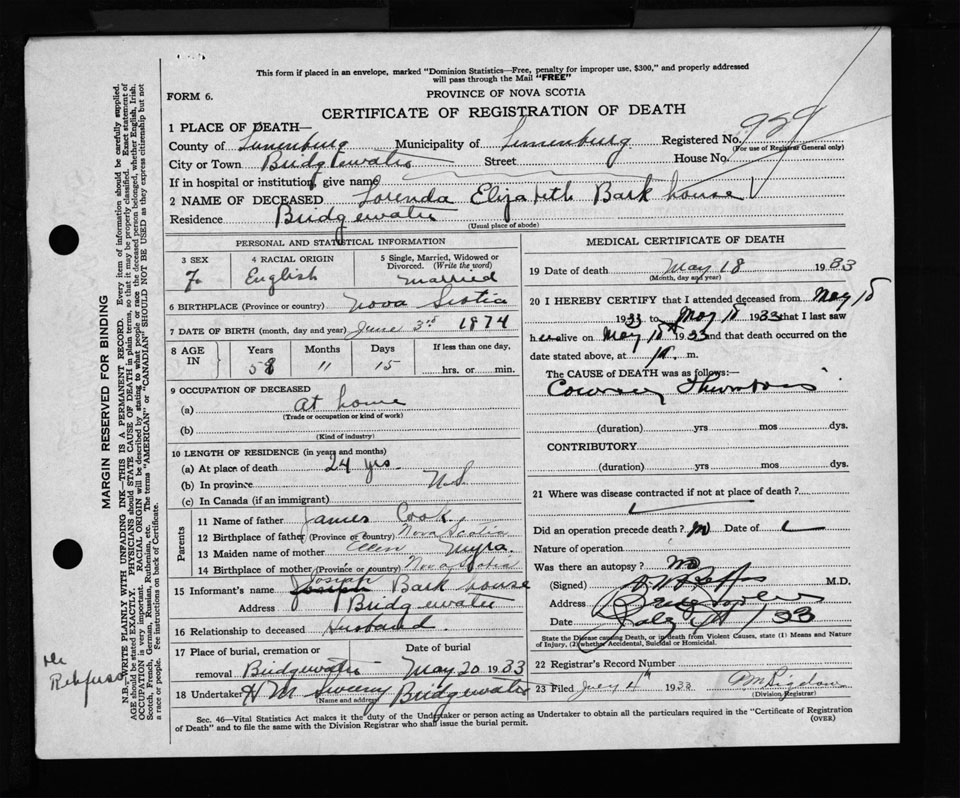 This form if placed in an envelope, marked "Dominion Statistics—Free, penalty for improper use, $300," and properly addressed
will pass through the Mail "FREE"
FORM 6.
PROVINCE OF NOVA SCOTIA
CERTIFICATE OF REGISTRATION OF DEATH
1 PLACE OF DEATH—
County of Lunenburg Municipality of Lunenburg Registered No. 929
(For use of Registrar General only)
City or Town Bridgewater Street House No.
If in hospital or institution, give name
2 NAME OF DECEASED Lorenda Elizabeth Bark house
Residence Bridgewater
(Usual place of abode)
PERSONAL AND STATISTICAL INFORMATION
3 SEX 4 RACIAL ORIGIN 5 Single, Married, Widowed or
Divorced. (Write the word)
F English married
6 BIRTHPLACE (Province or country) Nova Scotia
7 DATE OF BIRTH (month, day and year) June 3rd 1874
8 AGE IN Years Months Days If less than one day,
58 11 15 hrs. or min.
9 OCCUPATION OF DECEASED
(a) At home
(Trade or occupation or kind of work)
(b)
(Kind of industry)
10 LENGTH OF RESIDENCE (in years and months)
(a) At place of death 24 yrs.
(b) In province N.S.
(c) In Canada (if an immigrant)
Parents
11 Name of father James Cook
12 Birthplace of father (Province or country) Nova Scotia
13 Maiden name of mother Ellen Myra.
14 Birthplace of mother (Province or country) Nova Scotia
15 Informant's name Joseph Bark house
Address Bridgewater
16 Relationship to deceased Husband.
17 Place of burial, cremation or removal Date of burial
Bridgewater May 20 1933
18 Undertaker H M Sweeny Bridgewater
(Name and address)
MEDICAL CERTIFICATE OF DEATH
19 Date of death May 18 1933
(Month, day and year)
20 I HEREBY CERTIFY that I attended deceased from May 18
1933 to May 18 1933 that I last saw
her alive on May 18th 1933 and that death occurred on the
date stated above, at m.
The CAUSE OF DEATH was as follows:—
Coronary Thrombosis
(duration) yrs mos dys.
CONTRIBUTORY
(duration) yrs mos dys.
21 Where was disease contracted if not at place of death?
Did an operation precede death? no Date of
Nature of operation
Was there an autopsy? no
(Signed) M.D.
Address
Date July 4th / 33
State the Disease causing Death, or in death from Violent Causes, state (1) Means and Nature
of Injury, (2) whether Accidental, Suicidal or Homicidal.
22 Registrar's Record Number
23 Filed July 4th 1933
(Division Registrar)
Sec. 46—Vital Statistics Act makes it the duty of the Undertaker or person acting as Undertaker to obtain all the particulars required in the "Certificate of Registration
of Death" and to file the same with the Division Registrar who shall issue the burial permit.
(OVER)
MARGIN RESERVED FOR BINDING
N.B.—WRITE PLAINLY WITH UNFADING INK—THIS IS A PERMANENT RECORD. Every item of information should be carefully supplied.
AGE should be stated EXACTLY. PHYSICIANS should STATE CAUSE OF DEATH in plain terms, so that it may be properly classified. Exact statement of
OCCUPATION is very important. RACIAL ORIGIN will be described by stating to what people or race the deceased person belonged, whether English, Irish,
Scotch, French, German, Russian, Ruthenian, etc. The terms "AMERICAN" or "CANADIAN" SHOULD NOT BE USED as they express citizenship but not
a race or people. See instructions on back of Certificate.